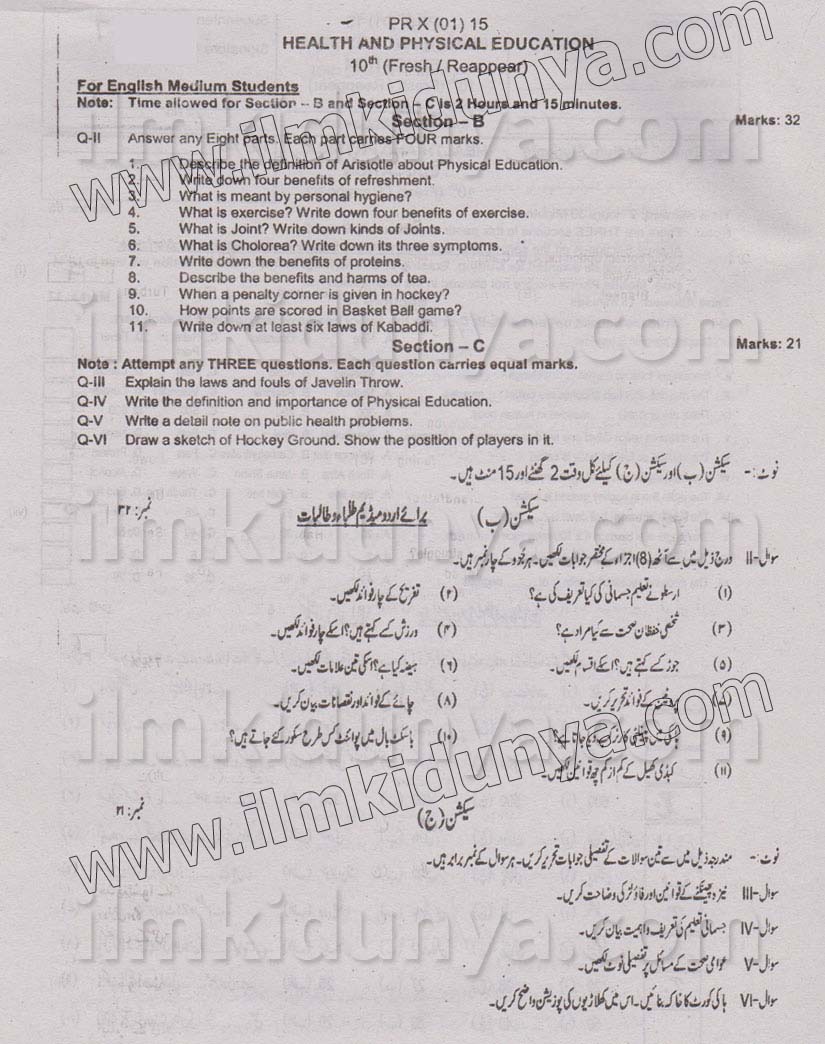 PR X (01) 15
HEALTH AND PHYSICAL EDUCATION
10th (Fresh / Reappear)
For English Medium Students
Note: Time allowed for Section – B and Section – C is 2 Hours and 15 minutes.
Section – B Marks: 32
Q-II Answer any Eight parts. Each part carries FOUR marks.
1. Describe the definition of Aristotle about Physical Education.
2. Write down four benefits of refreshment.
3. What is meant by personal hygiene?
4. What is exercise? Write down four benefits of exercise.
5. What is Joint? Write down kinds of Joints.
6. What is Cholorea? Write down its three symptoms.
7. Write down the benefits of proteins.
8. Describe the benefits and harms of tea.
9. When a penalty corner is given in hockey?
10. How points are scored in Basket Ball game?
11. Write down at least six laws of Kabaddi.
Section – C Marks: 21
Note : Attempt any THREE questions. Each question carries equal marks.
Q-III Explain the laws and fouls of Javelin Throw.
Q-IV Write the definition and importance of Physical Education.
Q-V Write a detail note on public health problems.
Q-VI Draw a sketch of Hockey Ground. Show the position of players in it.
نوٹ:- سیکشن (ب) اور سیکشن (ج) کیلئے کل وقت 2 گھنٹے اور 15 منٹ ہیں۔
سیکشن (ب) برائے اردو میڈیم طلباء و طالبات نمبر: ۳۲
سوال-II درج ذیل میں سے آٹھ (8) اجزاء کے مختصر جوابات لکھیں۔ ہر جُوو کے چار نمبر ہیں۔
(۱) ارسطو نے تعلیم جسمانی کی کیا تعریف کی ہے؟ (۲) تفریح کے چار فوائد لکھیں۔
(۳) شخصی حفظان صحت سے کیا مراد ہے؟ (۴) ورزش کسے کہتے ہیں؟ اسکے چار فوائد لکھیں۔
(۵) جوڑ کسے کہتے ہیں؟ اسکے اقسام لکھیں۔ (۶) ہیضہ کیا ہے؟ اسکی تین علامات لکھیں۔
(۷) پروٹین کے فوائد تحریر کریں۔ (۸) چائے کے فوائد اور نقصانات بیان کریں۔
(۹) ہاکی میں پینلٹی کارنر کب دیا جاتا ہے؟ (۱۰) باسکٹ بال میں پوائنٹ کس طرح سکور کئے جاتے ہیں؟
(۱۱) کبڈی کھیل کے کم از کم چھ قوانین لکھیں۔
سیکشن (ج) نمبر: ۲۱
نوٹ:- مندرجہ ذیل میں سے تین سوالات کے تفصیلی جوابات تحریر کریں۔ ہر سوال کے نمبر برابر ہیں۔
سوال-III نیزہ پھینکنے کے قوانین اور فاؤلز کی وضاحت کریں۔
سوال-IV جسمانی تعلیم کی تعریف و اہمیت بیان کریں۔
سوال-V عوامی صحت کے مسائل پر تفصیلی نوٹ لکھیں۔
سوال-VI ہاکی کورٹ کا خاکہ بنائیں۔ اس میں کھلاڑیوں کی پوزیشن واضح کریں۔
www.ilmkidunya.com
ilmkidunya.com
ilmkidunya.com
ilmkidunya.com
www.ilmkidunya.com
ilmkidunya.com
ilmkidunya.com